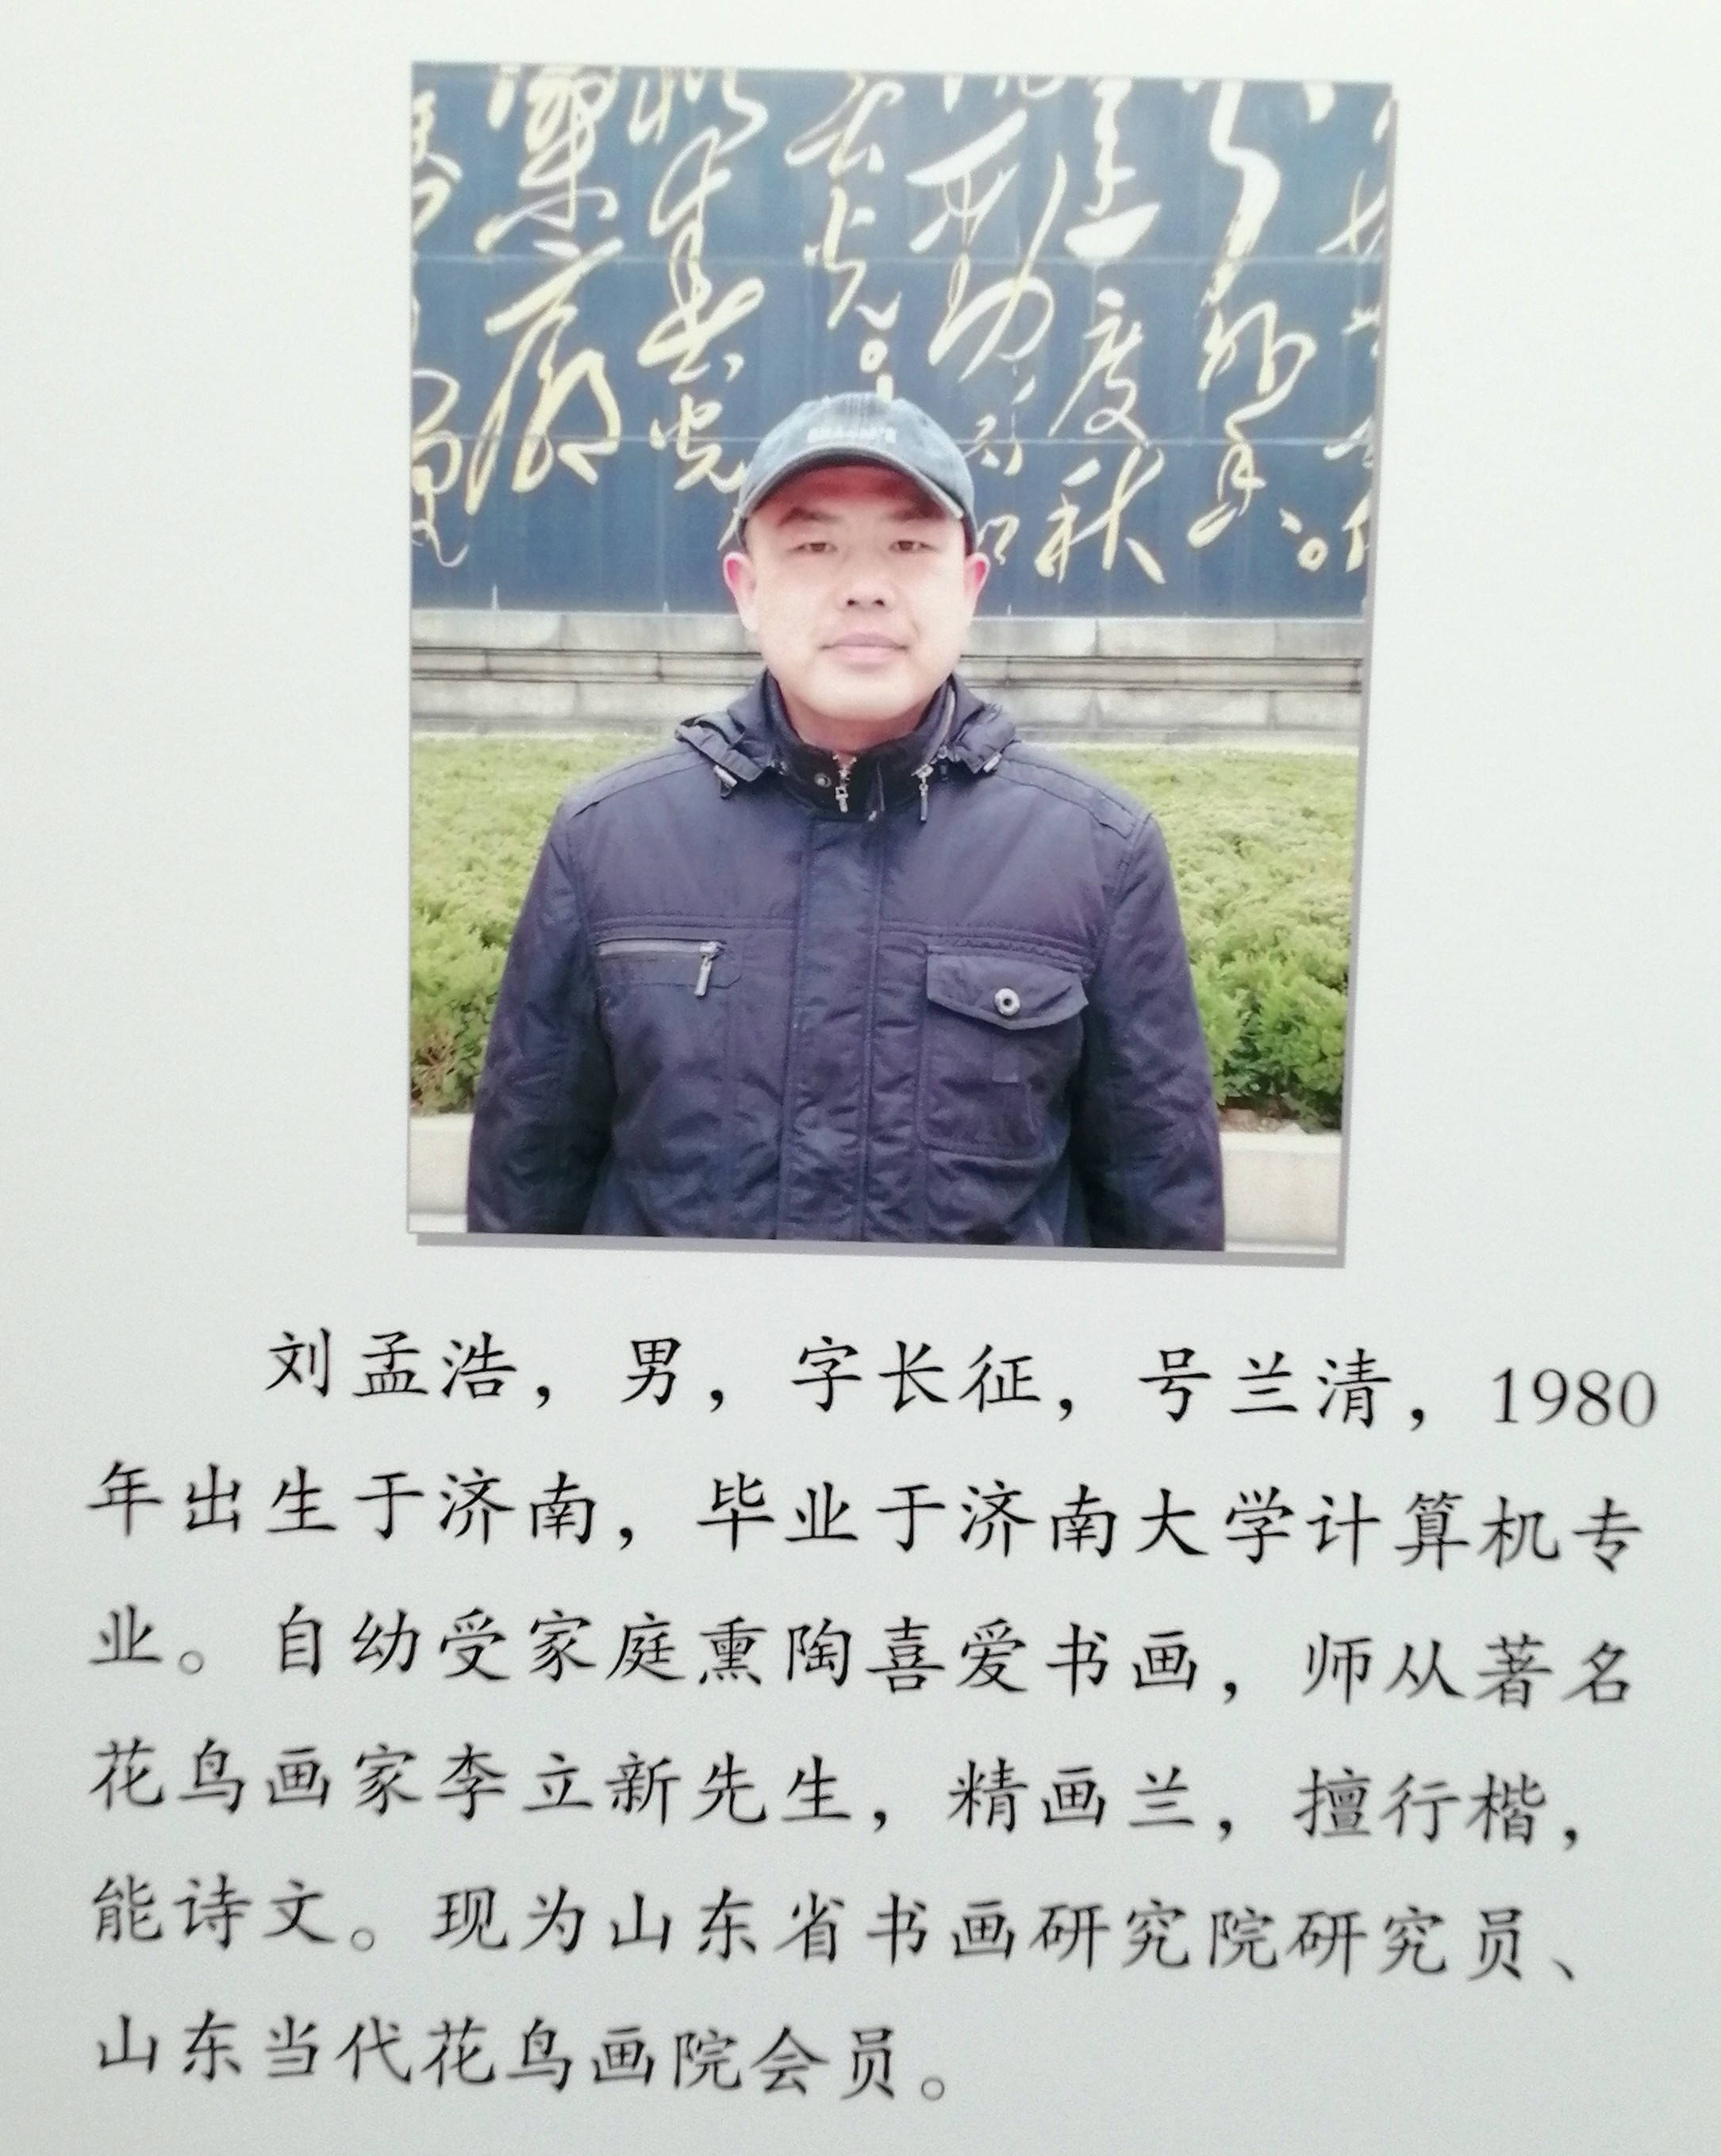 刘孟浩，男，字长征，号兰清，1980
年出生于济南，毕业于济南大学计算机专
业。自幼受家庭熏陶喜爱书画，师从著名
花鸟画家李立新先生，精画兰，擅行楷，
能诗文。现为山东省书画研究院研究员、
山东当代花鸟画院会员。